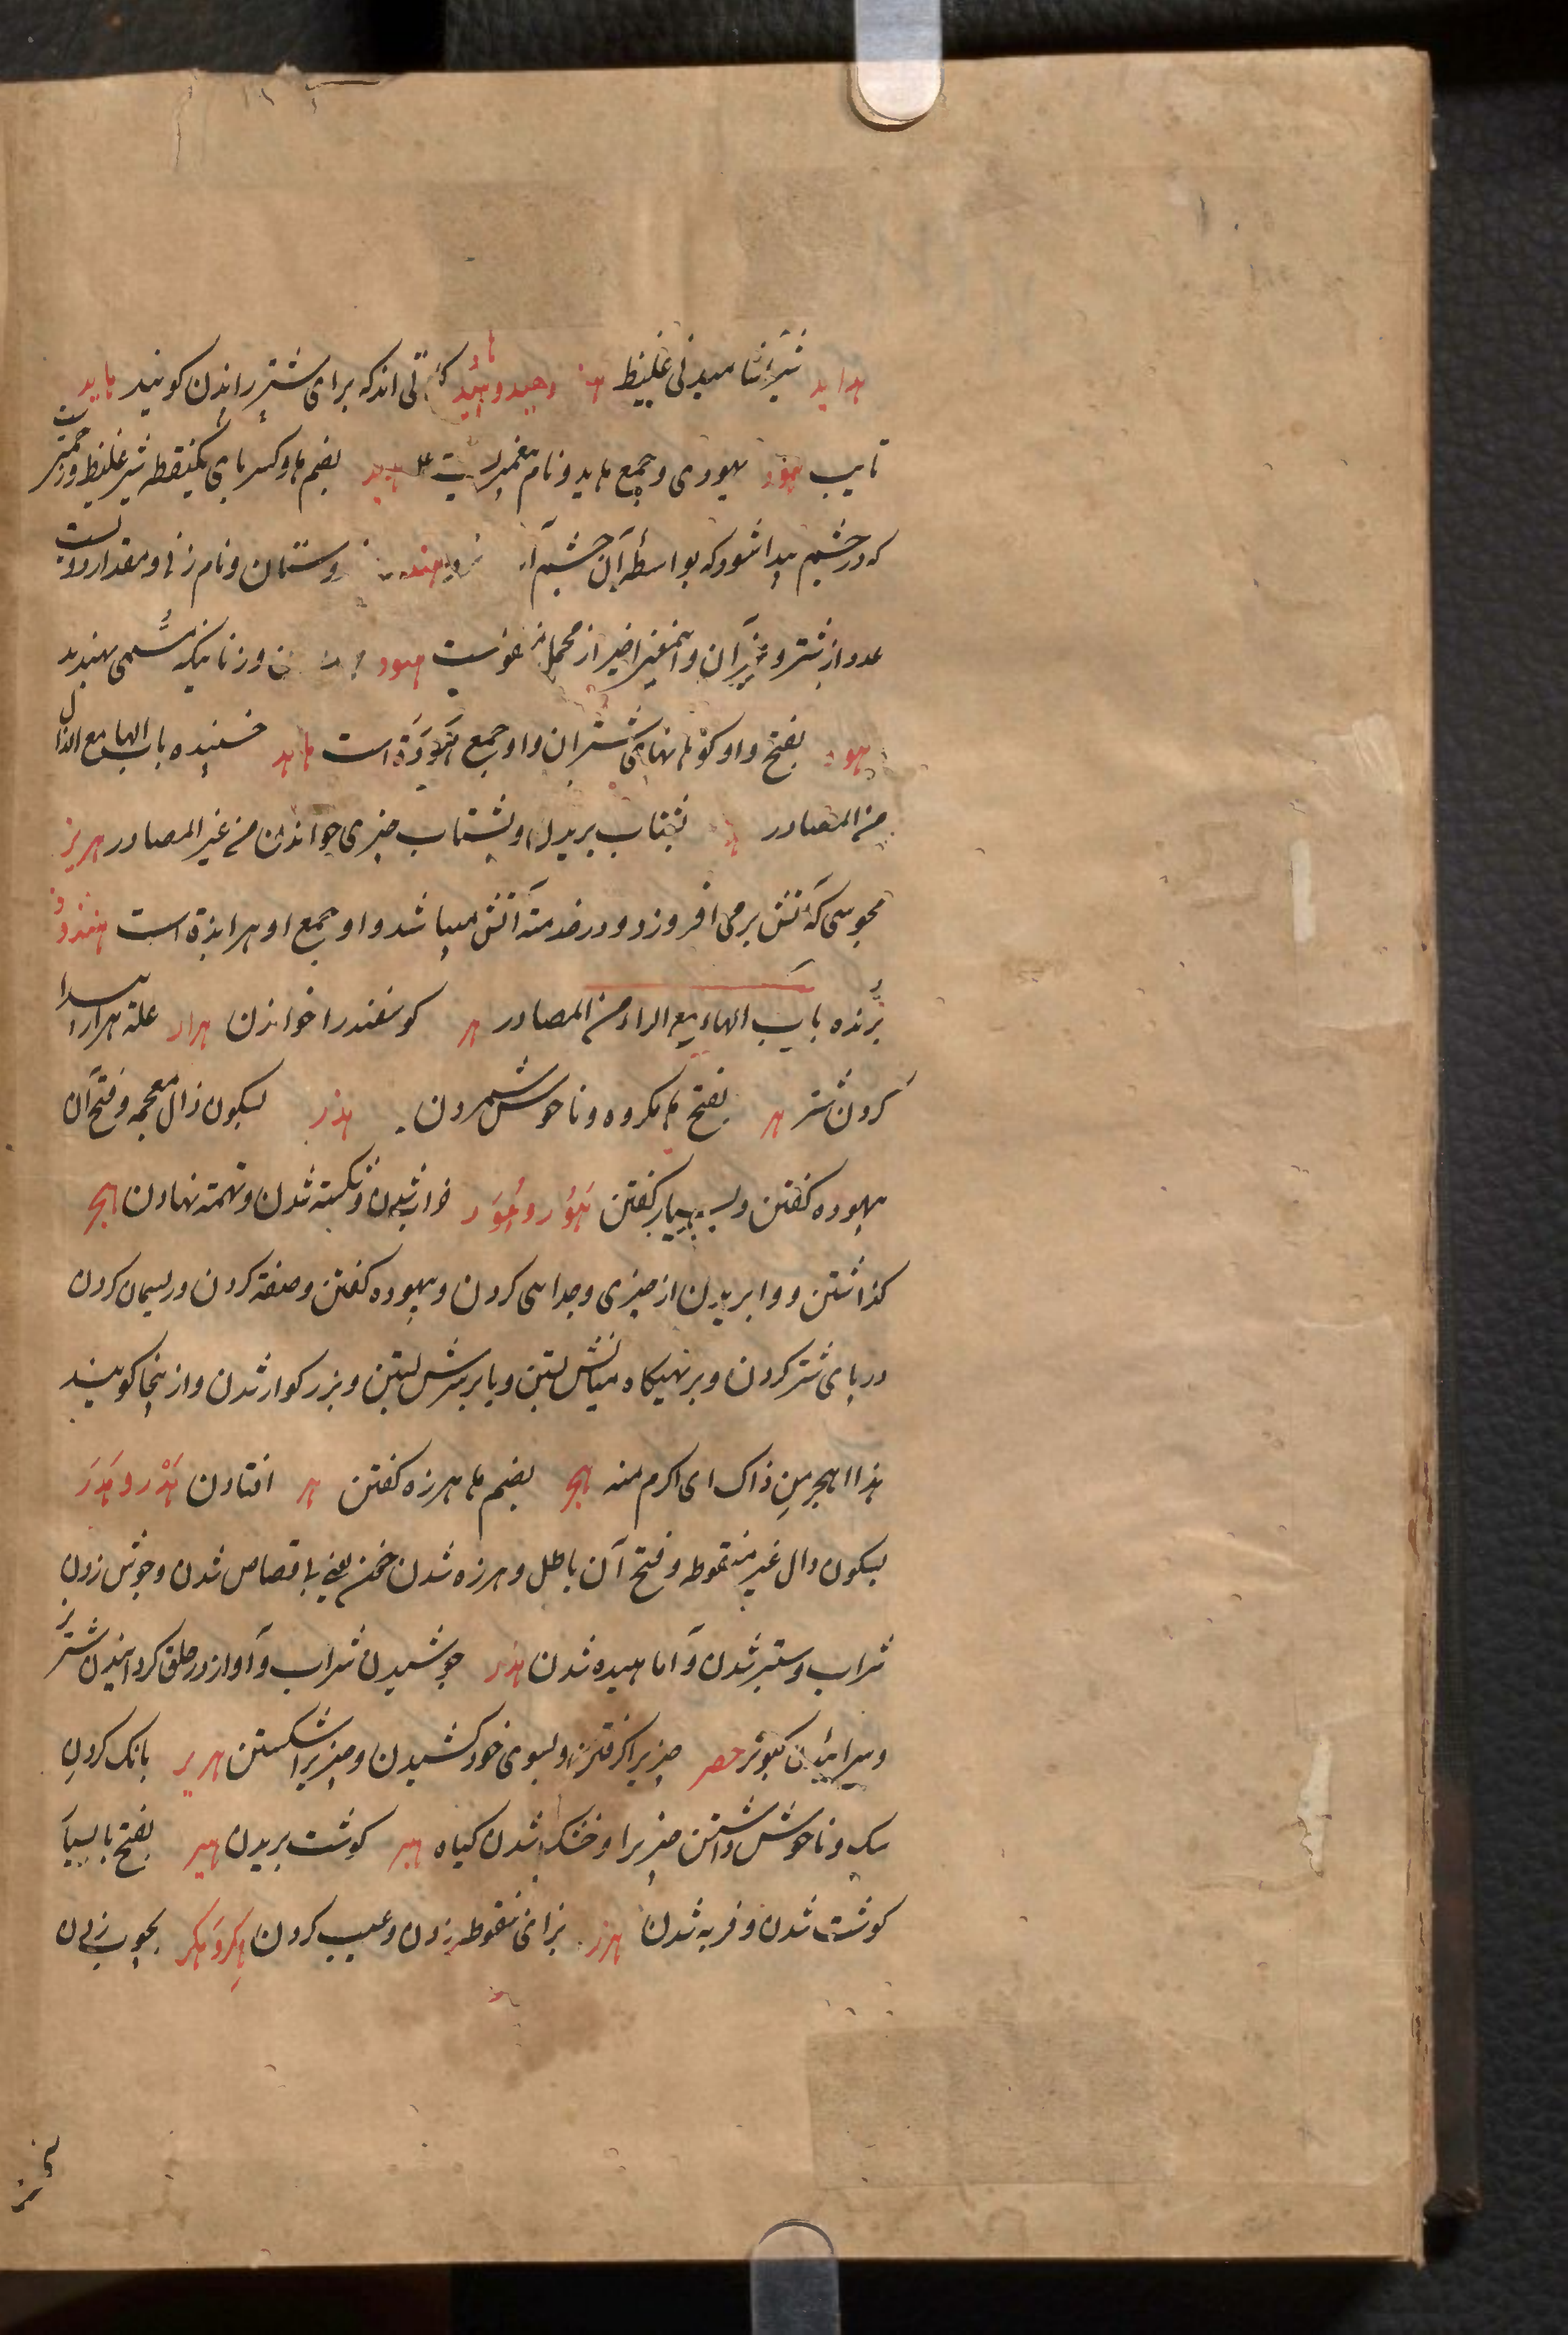 هداید شیر آشامیدنی غلیظ هاد وهید و هئید کلماتی اند که برای شتر راندن کویند هاید
تایب هود یهودی و جمع هاید و نام پیغمبریست ع هدبد بضم ها و کسر بای یکنقطه شیر غلیظ و زحمتیست
که در چشم پیدا شود که بواسطهٔ آن چشم هند وستان و نام زنی و مقدار دویست
عدد از شتر و غیر آن و اینمعنی اخیر از مجمل منقولست هنود ن و زنانیکه مسمی بهندند
هود بفتح واو کوهانهای شتران و او جمع هودة است هاهد خسبنده باب الهاء مع الذال
من المصادر هذ بشتاب بریدن و بشتاب چیزی خواندن من غیر المصادر هربذ
مجوسی که آتش بر می افروزد و در خدمت آتش میباشد و او جمع او هرابذة است هذوذ
برنده باب الهاء مع الراء من المصادر هر کوسفند را خواندن هرار علة هرار پیدا
کردن شتر هر بفتح ها مکروه و ناخوش شمردن هذر بسکون ذال معجمه و فتح آن
بیهوده کفتن و بسیار کفتن هور و هوور خراب شدن و شکسته شدن و تهمة نهادن هجر
کذاشتن و وا بریدن از چیزی و جدایی کردن و بیهوده کفتن و صفة کردن و ریسمان کردن
در پای شتر کردن و بر تهیکاه میانش بستن و یا بر سرش بستن و بزرکوار شدن و از اینجا کویند
هذا اهجر من ذاک ای اکرم منه هجر بضم ها هرزه کفتن هر افتادن هدر و هدر
بسکون دال غیر منقوطه و فتح آن باطل و هرزه شدن خون یعنی بی قصاص شدن و جوش زدن
شراب و ستبر شدن و آماهیده شدن هدر جوشیدن شراب و آواز در حلق کردانیدن شتر نر
و سرائیدن کبوتر هصر چیزیرا کرفتن و بسوی خود کشیدن و چیزیرا شکستن هریر بانک کردن
سک و ناخوش داشتن چیزیرا و خشک شدن کیاه هبر کوشت بریدن هبر بفتح با بسیار
کوشت شدن و فربه شدن هزر بزای منقوطه زدن و عیب کردن هکر و هکر بچوب زدن